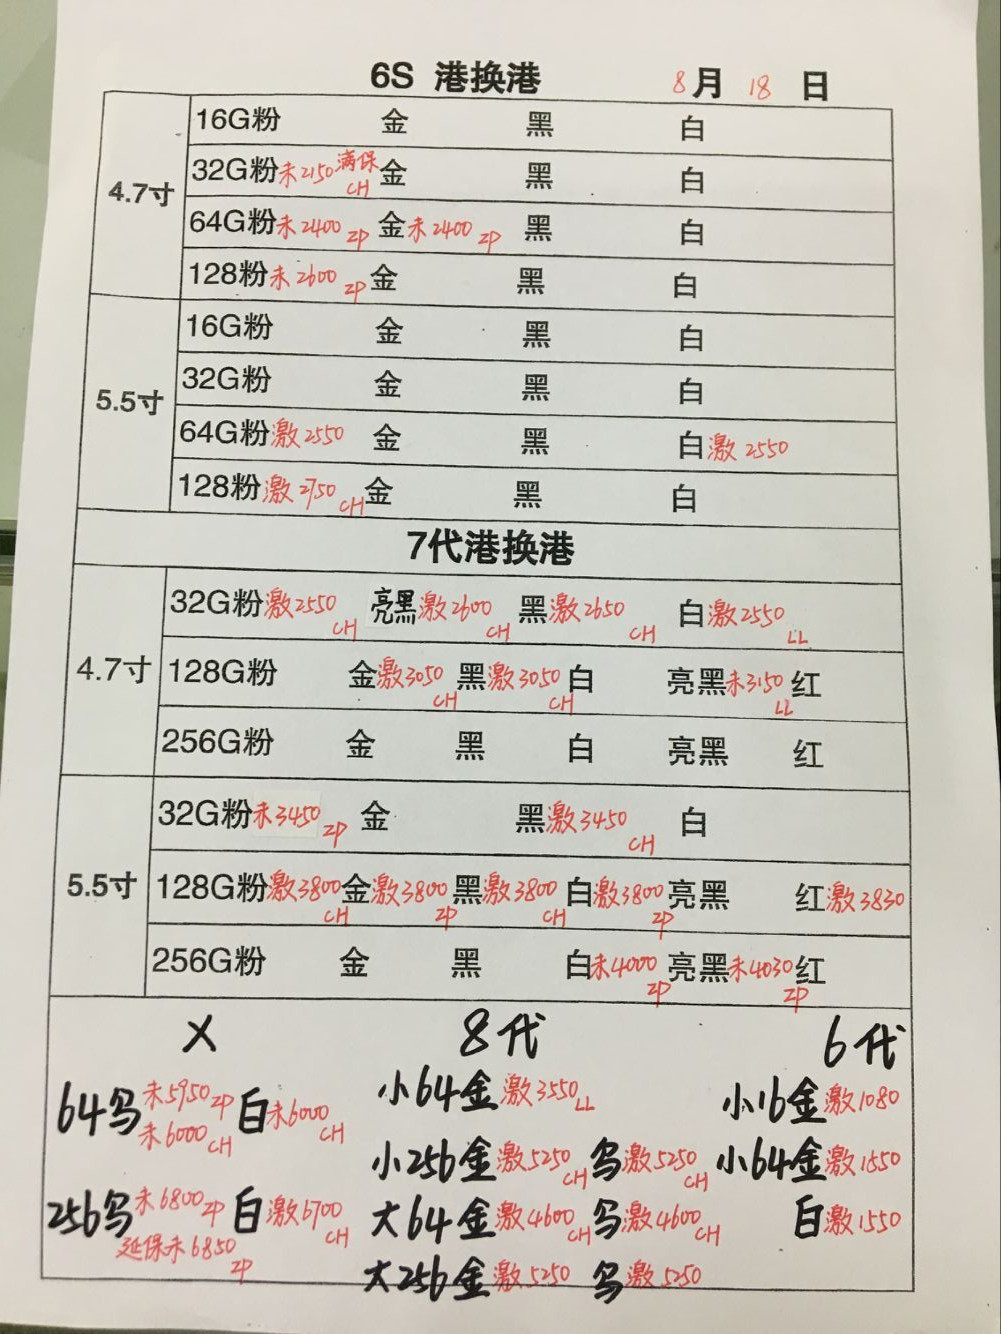 6S 港换港 8月 18 日
4.7寸
16G粉 金 黑 白
32G粉未2150满保CH 金 黑 白
64G粉未2400ZP 金未2400ZP 黑 白
128粉未2600ZP 金 黑 白
5.5寸
16G粉 金 黑 白
32G粉 金 黑 白
64G粉激2550 金 黑 白激2550
128粉激2750CH 金 黑 白
7代港换港
4.7寸
32G粉激2550CH 亮黑激2600CH 黑激2650CH 白激2550LL
128G粉 金激3050CH 黑激3050CH 白 亮黑未3150LL 红
256G粉 金 黑 白 亮黑 红
5.5寸
32G粉未3450ZP 金 黑激3450CH 白
128G粉激3800CH 金激3800ZP 黑激3800CH 白激3800ZP 亮黑 红激3830
256G粉 金 黑 白未4000ZP 亮黑未4030ZP 红
X 8代 6代
64乌未5950ZP 未6000CH 白未6000CH 小64金激3550LL 小16金激1080
小256金激5250CH 乌激5250CH 小64金激1550
256乌未6800ZP 白激6700CH 大64金激4600CH 乌激4600CH 白激1550
延保未6850ZP
大256金激5250 乌激5250